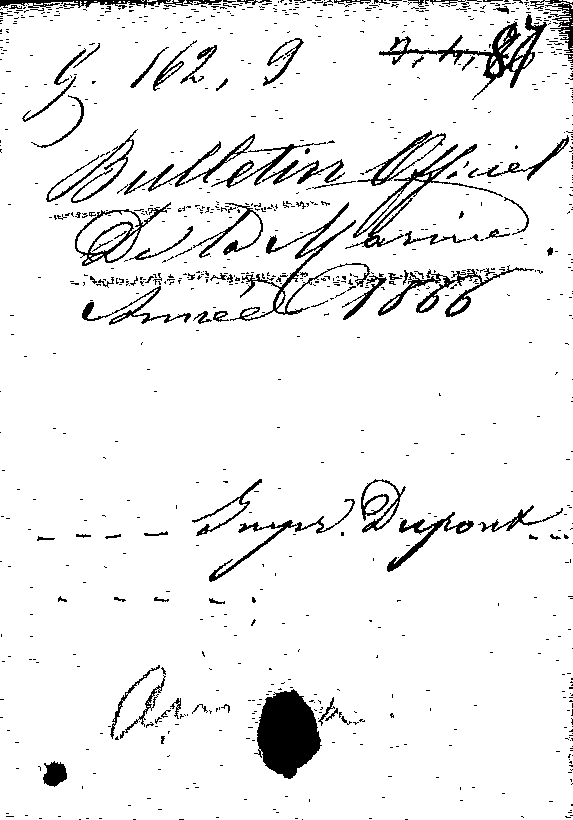 G. 162, 9
Bulletin Officiel
De la Marine.
Année 1866
Impr. Dupont